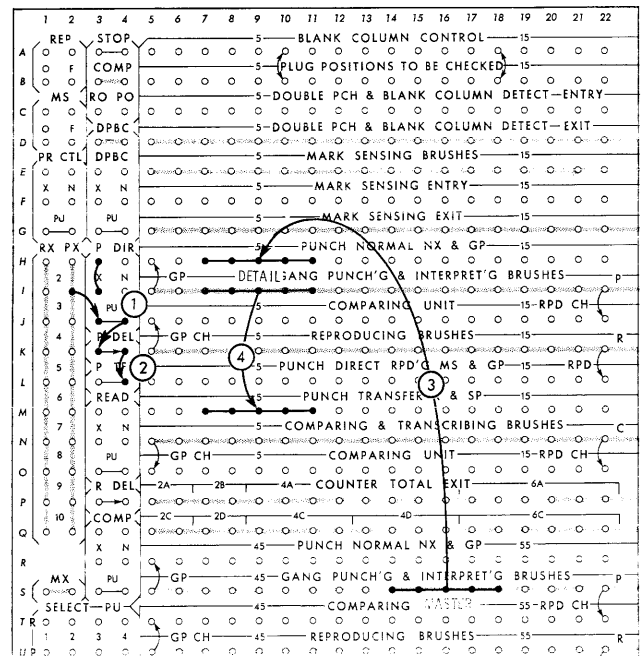 1 2 3 4 5 6 7 8 9 10 11 12 13 14 15 16 17 18 19 20 21 22
REP STOP 5 BLANK COLUMN CONTROL 15
A
F COMP 5 PLUG POSITIONS TO BE CHECKED 15
B
MS RO PO 5 DOUBLE PCH & BLANK COLUMN DETECT-ENTRY
C
F DPBC 5 DOUBLE PCH & BLANK COLUMN DETECT-EXIT
D
PR CTL DPBC 5 MARK SENSING BRUSHES 15
E
X N X N 5 MARK SENSING ENTRY 15
F
PU PU 5 MARK SENSING EXIT 15
G
RX PX P DIR 5 PUNCH NORMAL NX & GP 15
H
2 X N GP DETAIL GANG PUNCH'G & INTERPRET'G BRUSHES P
I
3 PU 1 5 COMPARING UNIT 15 RPD CH
J
4 P DEL GP CH 5 REPRODUCING BRUSHES 15 R
K
5 P TF 2 4 5 PUNCH DIRECT RPD'G MS & GP 15 RPD 3
L
6 READ 5 PUNCH TRANSFER & SP 15
M
7 X N 5 COMPARING & TRANSCRIBING BRUSHES C
N
8 PU GP CH 5 COMPARING UNIT 15 RPD CH
O
9 R DEL 2A 2B 4A COUNTER TOTAL EXIT 6A
P
10 COMP 2C 2D 4C 4D 6C
Q
X N 45 PUNCH NORMAL NX & GP 55
R
MX PU GP 45 GANG PUNCH'G & INTERPRET'G BRUSHES P
S
SELECT PU 45 COMPARING MASTER 55 RPD CH
T R
1 2 3 4 GP CH 45 REPRODUCING BRUSHES 55 R
U P